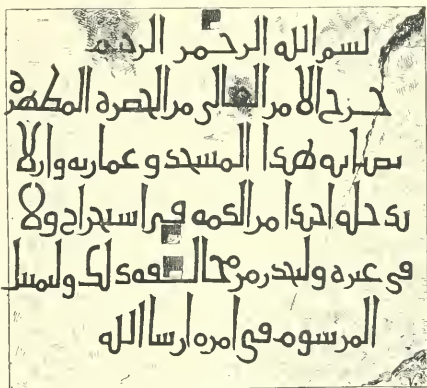 بسم الله الرحمن الرحيم
خرج الامر العالى من الحضرة المطهرة
بصيانة هذا المسجد و عمارته وان لا
يدخله احدا من في استخراج ولا
في غيره وليحذر من مخالفة ذلك وليمتثل
المرسوم في امره ان شا الله